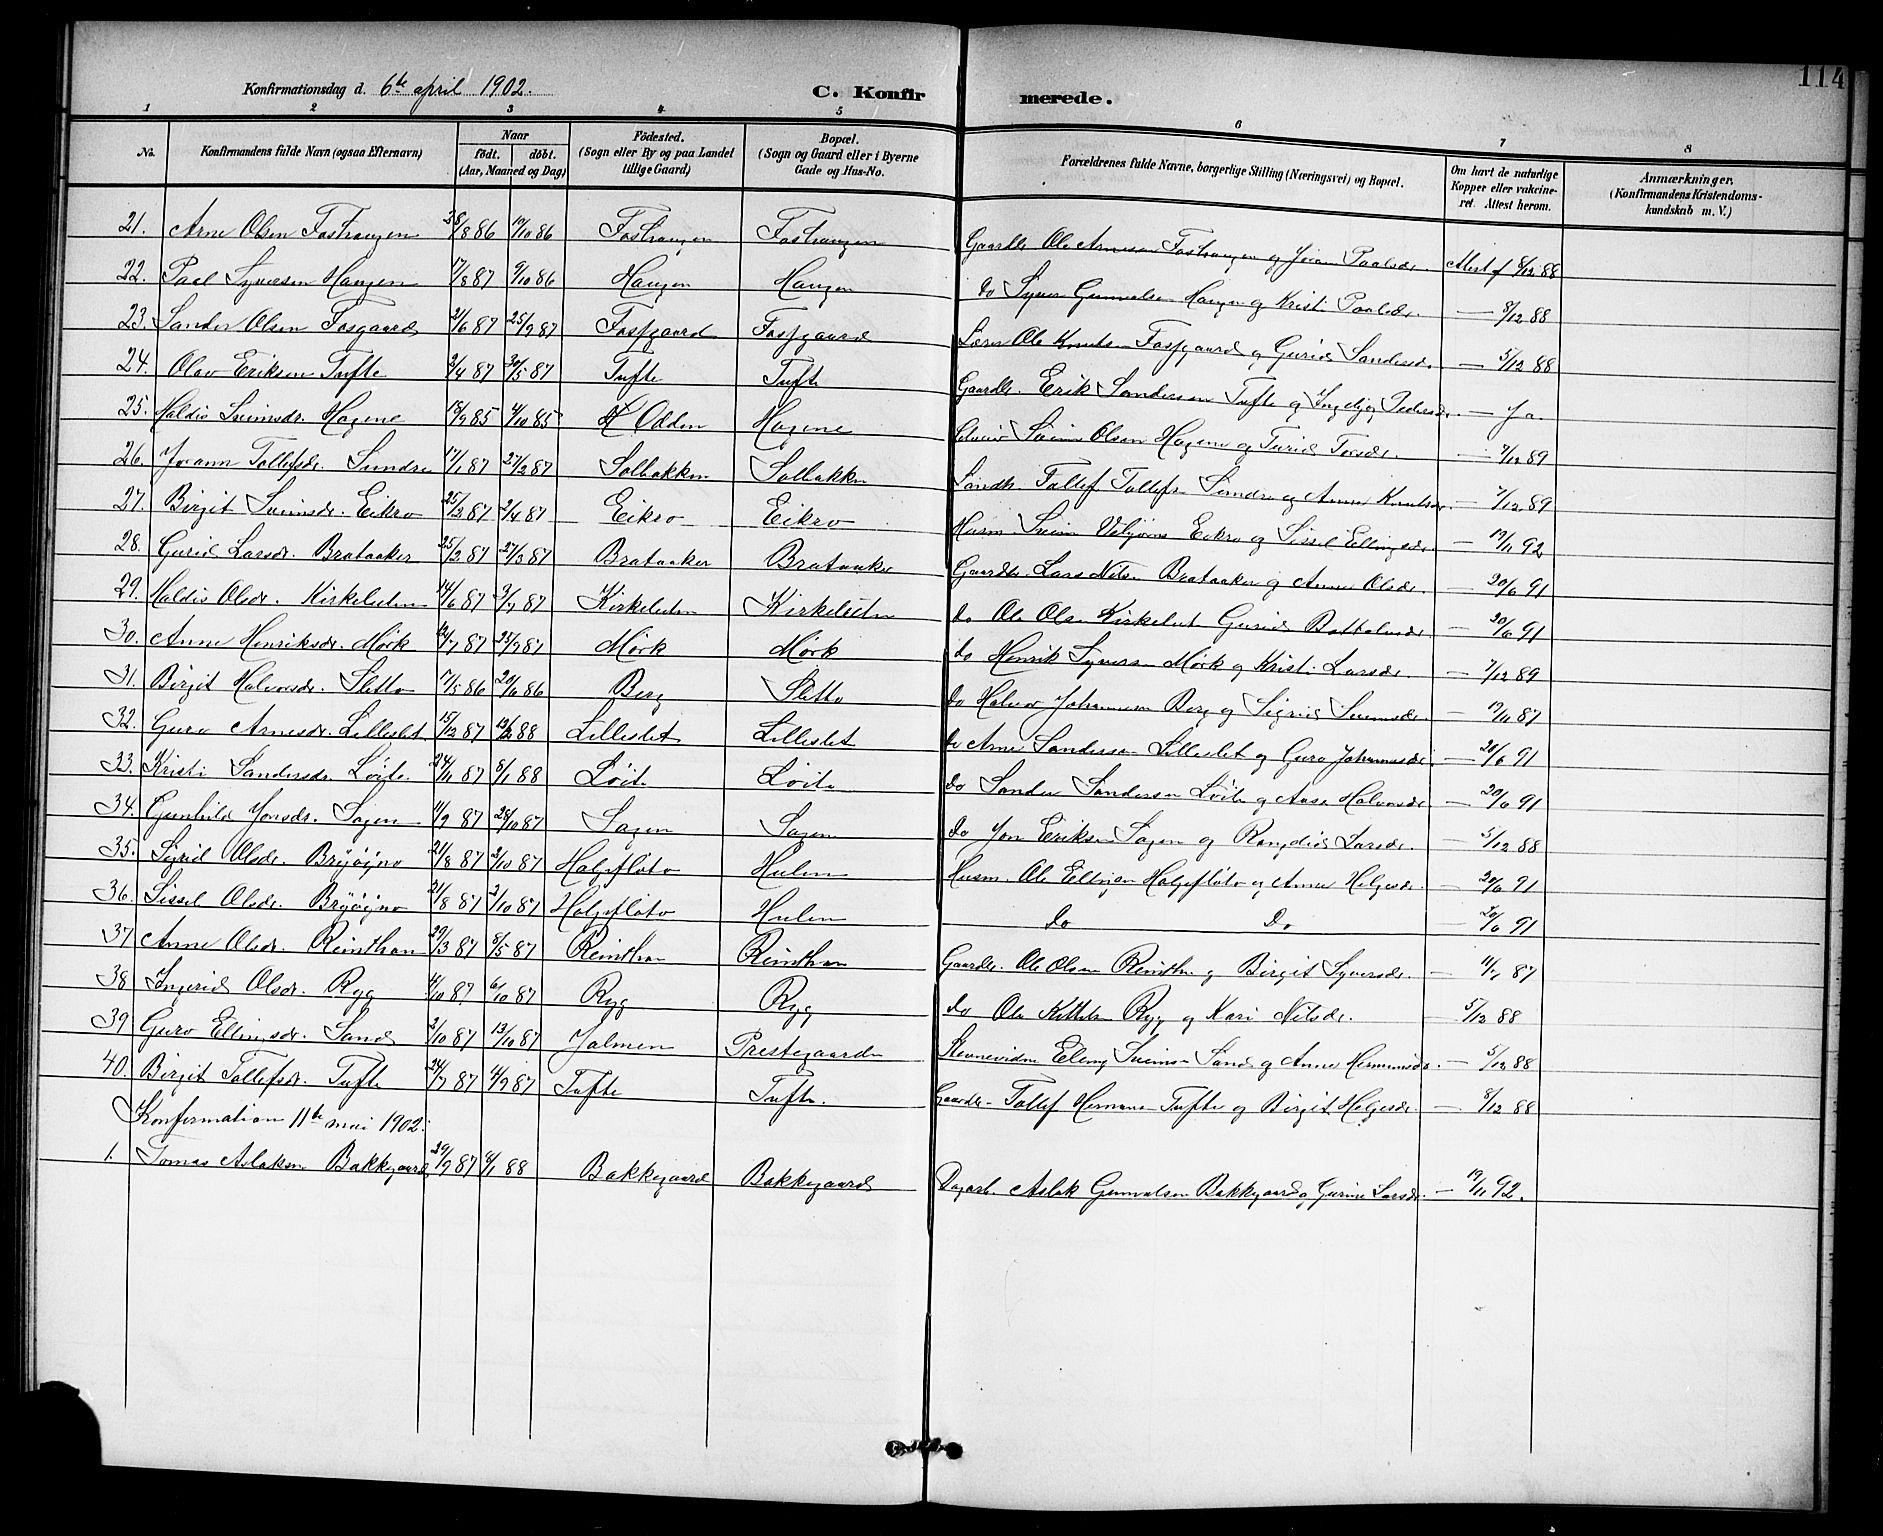 114
Konfirmationsdag d. 6te april 1902. C. Konfir merede.
1 2 3 4 5 6 7 8
No. Konfirmandens fulde Navn (ogsaa Efternavn) Naar födt. döbt. (Aar, Maaned og Dag) Födested. (Sogn eller By og paa Landet tillige Gaard) Bopæl. (Sogn og Gaard eller i Byerne Gade og Hus-No. Forældrenes fulde Navne, borgerlige Stilling (Næringsvei) og Bopæl. Om havt de naturlige Kopper eller vakcineret. Attest herom. Anmærkninger. (Konfirmandens Kristendomskundskab m. V.)
21. Arne Olsen Foshaugen 28/8 86 17/10 86 Foshaugen Foshaugen Gaardbr. Ole Arnesen Foshaugen og Joran Paalsdr. Attest af 8/12 88
22. Paal Syversen Haugen 17/8 87 9/10 86 Haugen Haugen do Syver Gunvalsen Haugen og Kristi Paalsdr. — 8/12 88
23. Sander Olsen Fosgaard 21/6 87 25/9 87 Fossgaard Fossgaard Lærer Ole Knutsen Fossgaard og Gurid Sandersdr. — 5/12 88
24. Olav Eriksen Tufte 2/4 87 30/5 87 Tufte Tufte Gaardbr. Erik Sandersen Tufte og Ingebjør Pedersdr. — Ja.
25. Haldis Sveinsdr. Hagene 18/9 85 4/10 85 Odden Hagene Svein Olsen Hagene og Turid — 7/12 89
26. Jorann Tollefsdr. Sundre 17/1 87 27/2 87 Solbakken Solbakken Landh. Tollef Tollefs. Sundre og Anne Knutsdr. — 7/12 89
27. Birgit Sveinsdr. Eikro 25/2 87 2/4 87 Eikro Eikro Husm. Svein Eikro og Sissel Ellingsdr. — 19/11 92
28. Gurid Larsdr. Brataaker 25/2 87 27/3 87 Brataaker Brataaker Gaardbr. Lars Nilsen Brataaker og Anne Olsdr. — 20/6 91
29. Haldis Olsdr. Kirkeleiten 14/6 87 3/7 87 Kirkeleiten Kirkeleiten do Ole Olsen Kirkeleit Gurid Bottolvsdr. — 20/6 91
30. Anne Henriksdr. Mørk 12/7 87 25/9 87 Mørk Mørk do Henrik Syversen Mørk og Kristi Larsdr. — 7/12 89
31. Birgit Halvorsdr. Sletto 17/5 86 20/6 86 Berg Sletto do Halvor Johannesen Berg og Sigrid Sveinsdr. — 19/11 87
32. Guro Arnesdr. Lilleslet 15/12 87 12/2 88 Lilleslet Lilleslet do Arne Sandersen Lilleslet og Guro Johannesdr. — 20/6 91
33. Kristi Sandersdr. Løite 24/11 87 8/1 88 Løite Løite do Sander Sandersen Løite og Aase Halvorsdr. — 20/6 91
34. Gunhild Jonsdr. Sagen 11/9 87 28/10 87 Sagen Sagen do Jon Eriksen Sagen og Rangdid Larsdr. — 5/12 88
35. Sigrid Olsdr. Bryøigno 21/8 87 2/10 87 Holgefløto Hulen Husm. Ole Ellingsen Holgefløto og Anne Helgesdr. — 20/6 91
36. Sissel Olsdr. Bryøigno 21/8 87 2/10 87 Holgefløto Hulen do do — 20/6 91
37 Anne Olsdr. Reinthon 29/3 87 8/5 87 Reinthon Reinthon Gaardbr. Ole Olsen Reinthon og Birgit Syversdr. — 11/7 87
38 Ingerid Olsdr. Ryg 4/10 87 6/10 87 Ryg Ryg do Ole Kittelsen Ryg og Kari Nilsdr. — 5/12 88
39 Guro Ellingsdr. Sand 2/10 87 13/10 87 Jalmen Prestegaarden Stevnevidne Elling Sveinsen Sand og Anne Hermansdr. — 5/12 88
40. Birgit Tollefsdr. Tufte 24/7 87 4/9 87 Tufte Tufte. Gaardbr. Tollef Hermans Tufte og Birgit Helgesdr. — 8/12 88
Konfirmation 11te mai 1902.
1. Tomas Aslaksen Bakkegaard 29/9 87 6/1 88 Bakkegaard Bakkegaard Dagarb. Aslak Gunvalsen Bakkegaard og Gurine Larsdr. — 19/11 92.